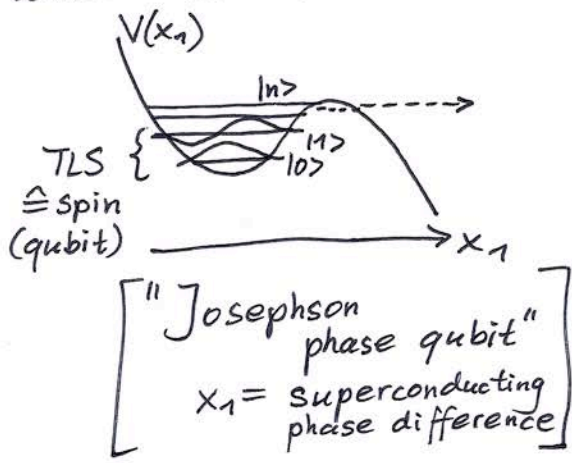 V(x₁)
|n>
|1>
|0>
TLS {
≙ spin
(qubit)
x₁
["Josephson
phase qubit"
x₁ = superconducting
phase difference]